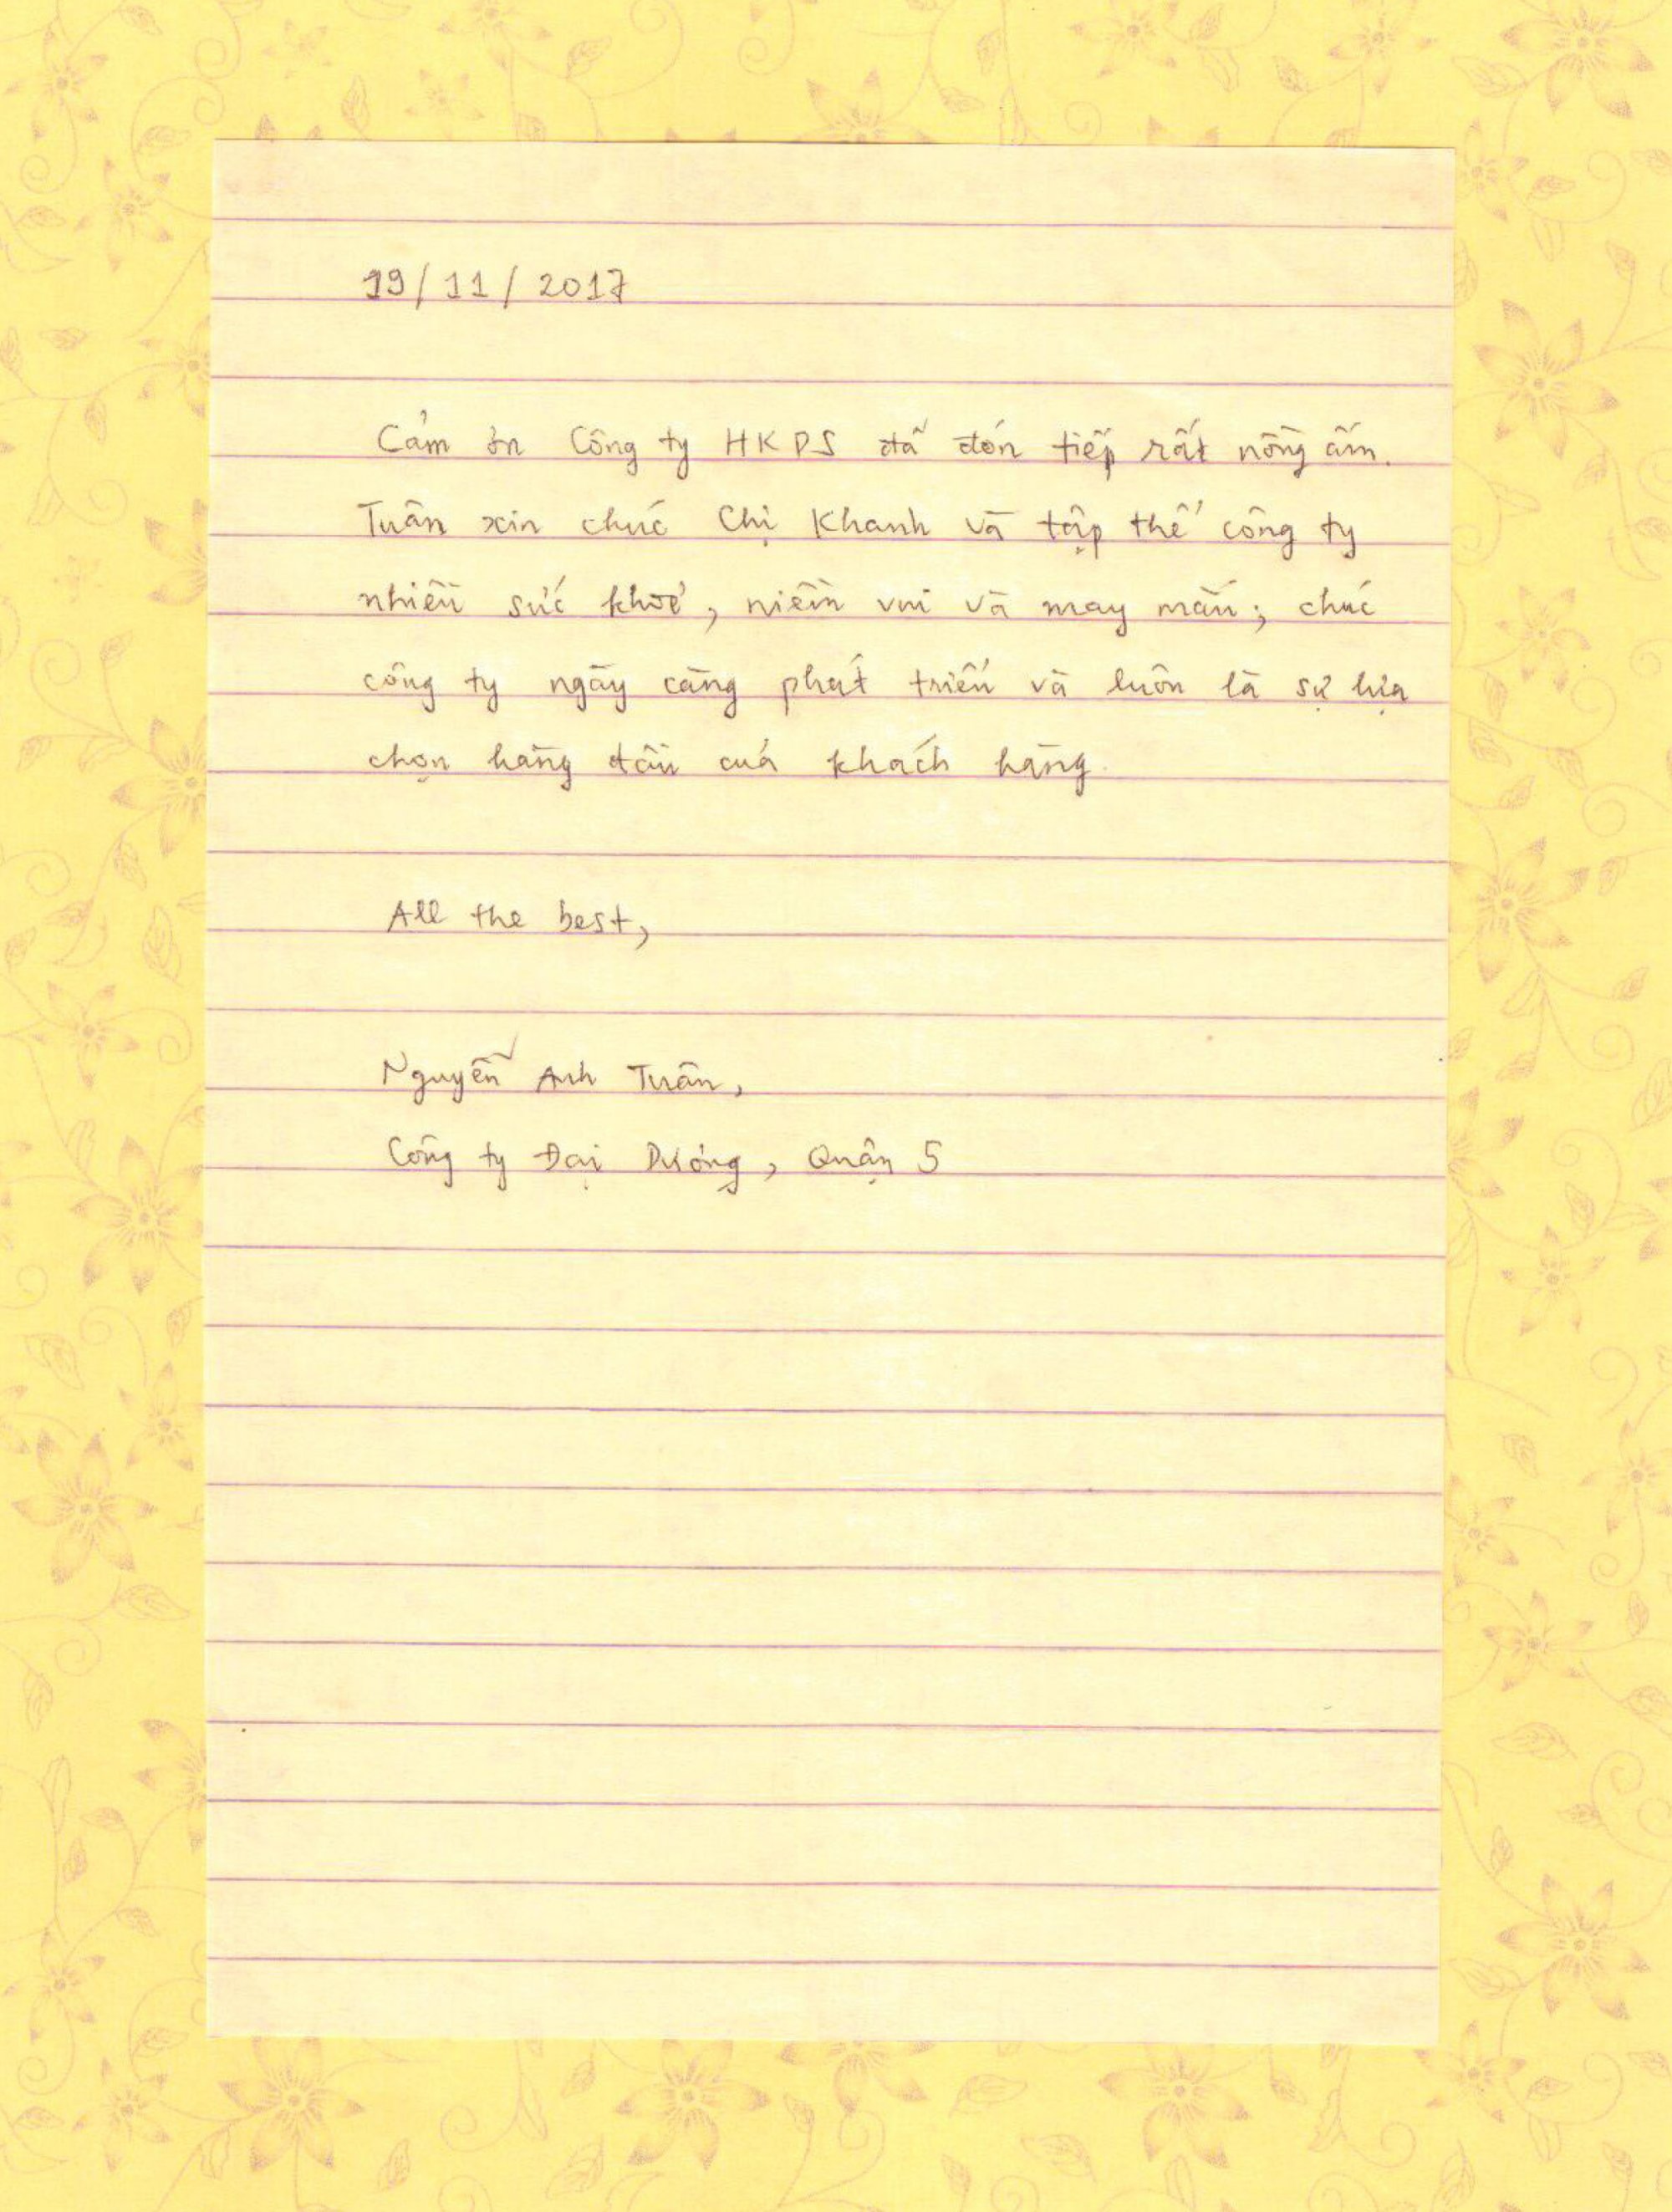 19/11/2017
Cảm ơn Công ty HKPS đã đón tiếp rất nồng ấm.
Tuấn xin chúc Chị Khanh và tập thể công ty
nhiều sức khoẻ, niềm vui và may mắn; chúc
công ty ngày càng phát triển và luôn là sự lựa
chọn hàng đầu của khách hàng.
All the best,
Nguyễn Anh Tuấn,
Công ty Đại Dương, Quận 5